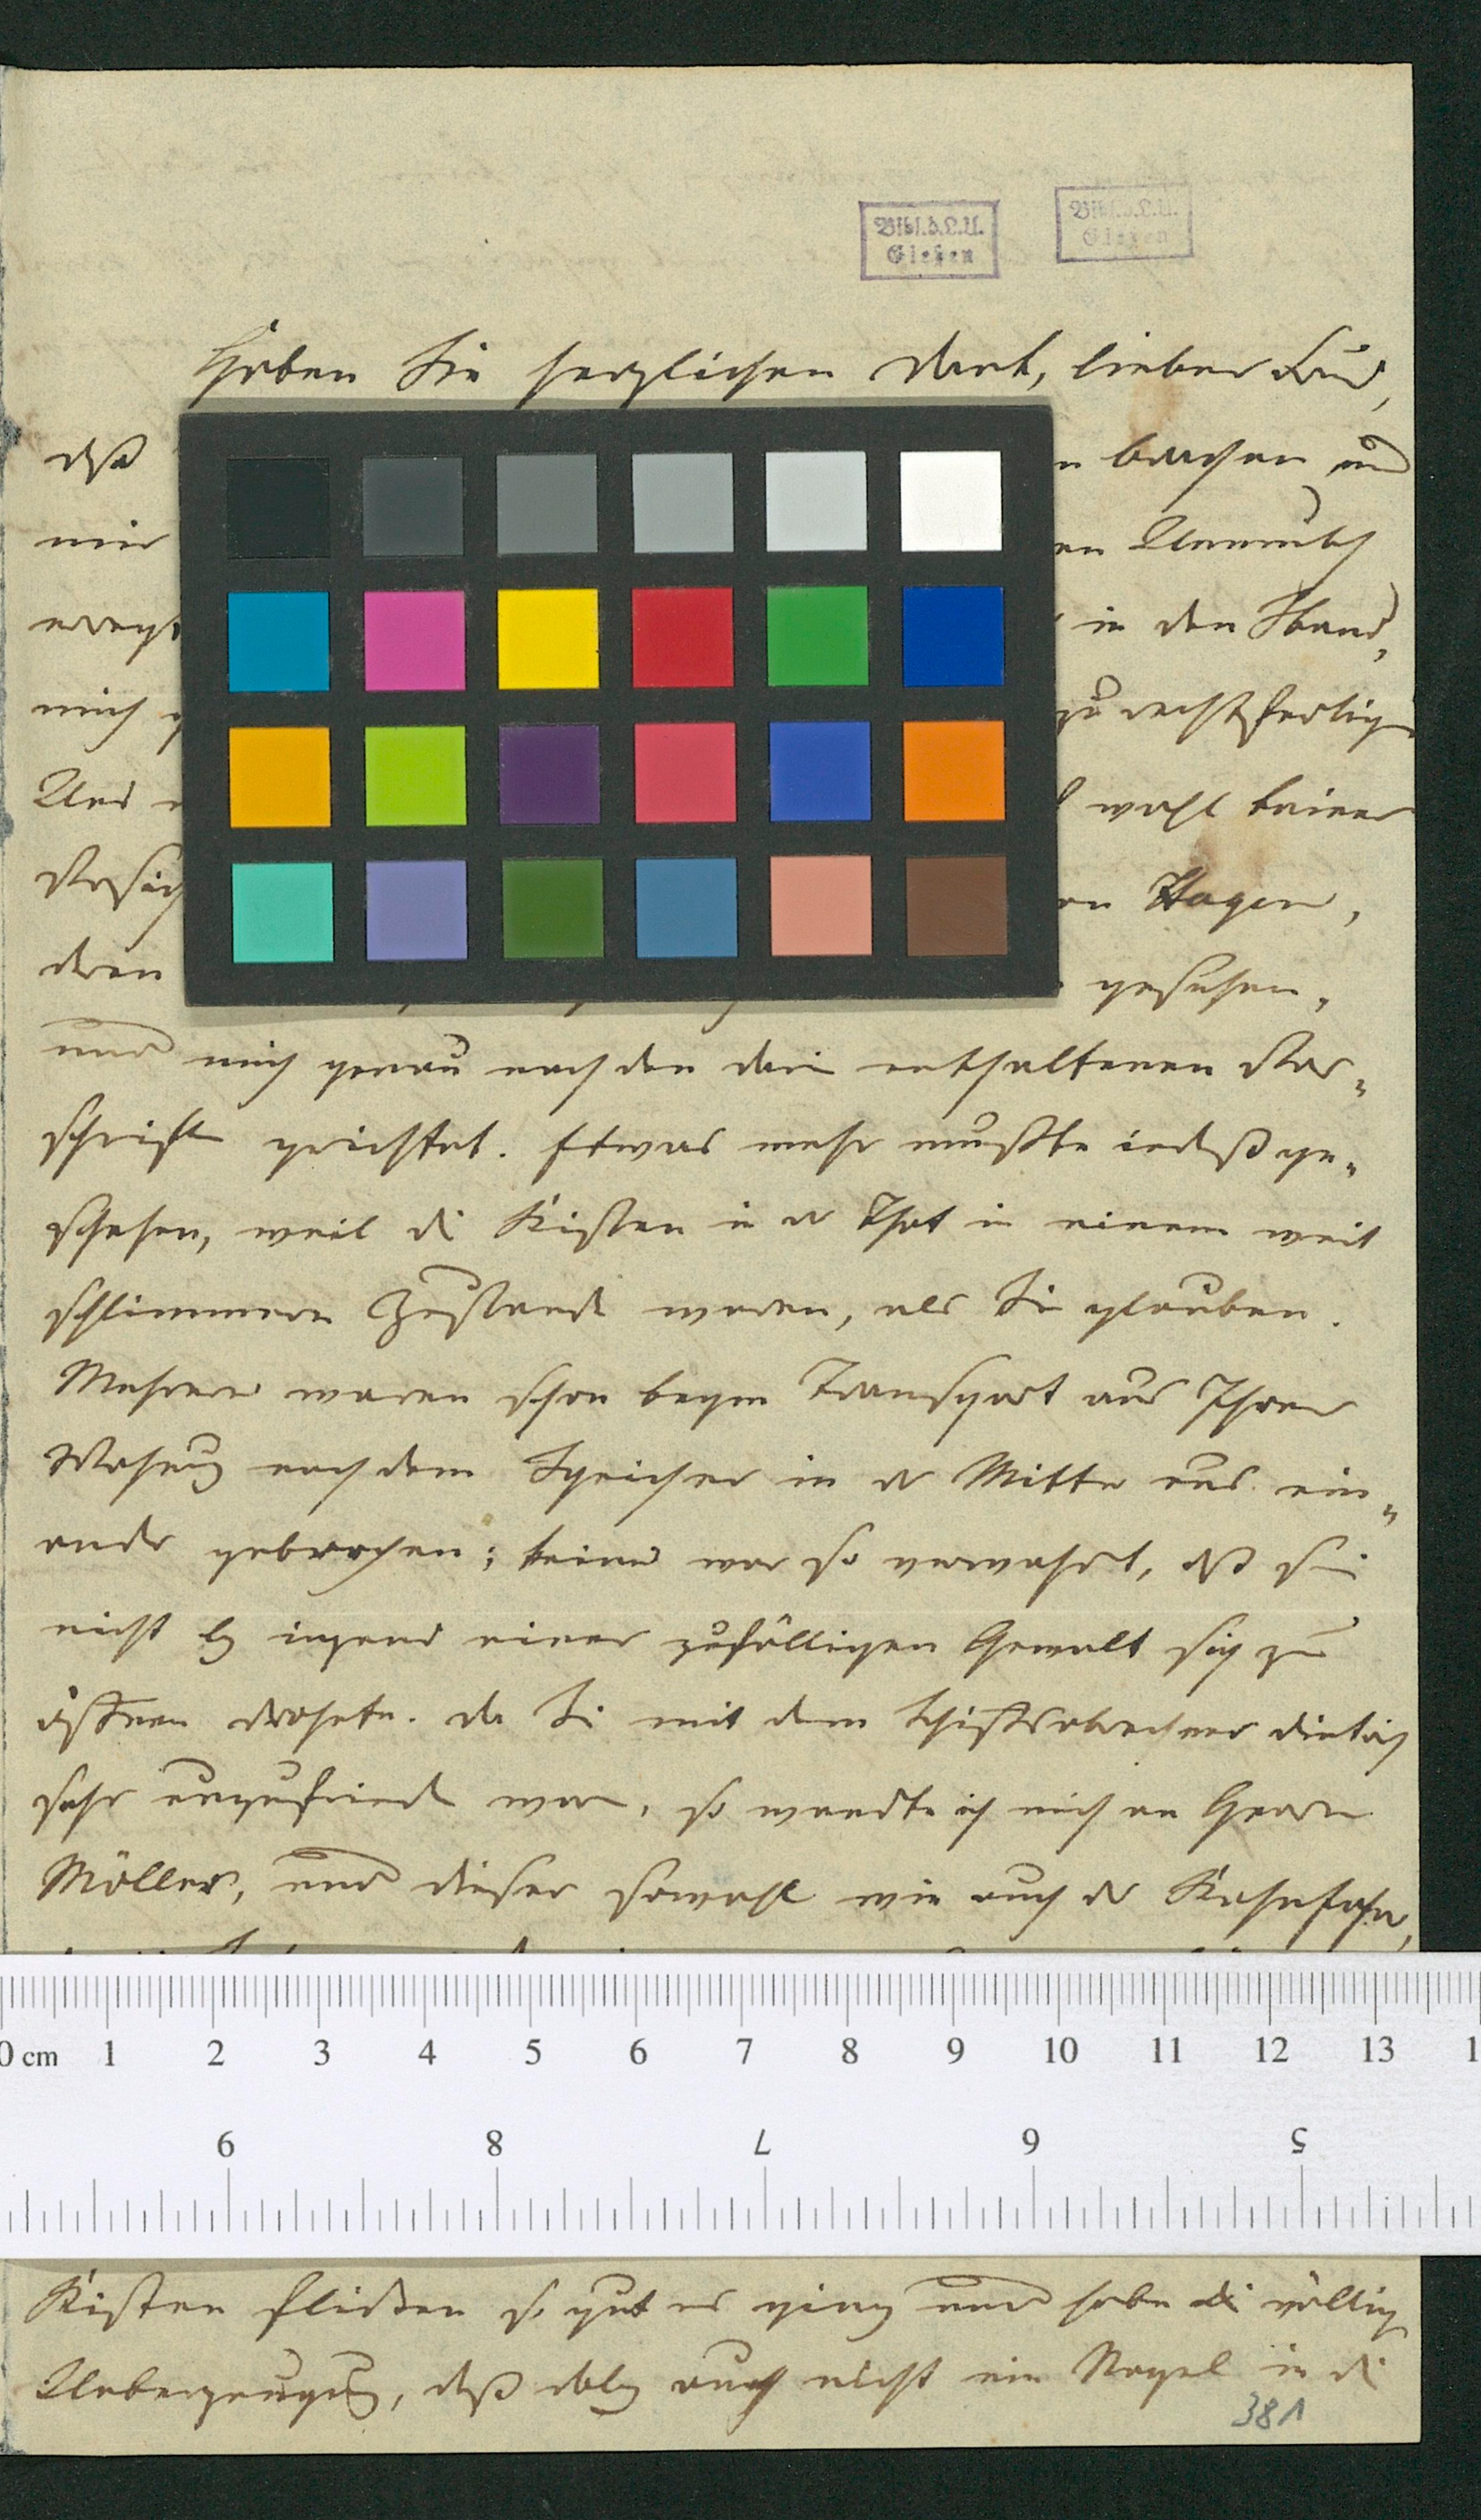 Bibl.d.L.U.
Gießen
Bibl.d.L.U.
Gießen
Haben Sie herzlichen Dank, lieber Freund,
daß n brachen und
mir en Unmuth
erregt in den Stand,
mich zu rechtfertigen
Und wohl keiner
Versich on Hagen,
deren gesehen,
und mich genau nach den darin enthaltenen Vor-
schriften gerichtet. Etwas mehr mußte indeß ge-
schehen, weil die Kisten in der That in einem weit
schlimmern Zustande waren, als Sie glauben.
Mehrere waren schon beym Transport aus Ihrer
Wohnung nach dem Speicher in der Mitte aus ein-
ander gebrochen; keine war so verwahrt, daß sie
nicht bey irgend einer zufälligen Gewalt sich zu
öffnen drohete. Da Sie mit dem Schiffsabrechner Dietrich
sehr unzufrieden waren, so wandte ich mich an Herrn
Möller, und dieser sowohl wie auch der
0 cm 1 2 3 4 5 6 7 8 9 10 11 12 13 1
9 8 7 6 5
Kisten flicken so gut es ging und habe die völlige
Ueberzeugung, daß dabey auch nicht ein Nagel in die
381